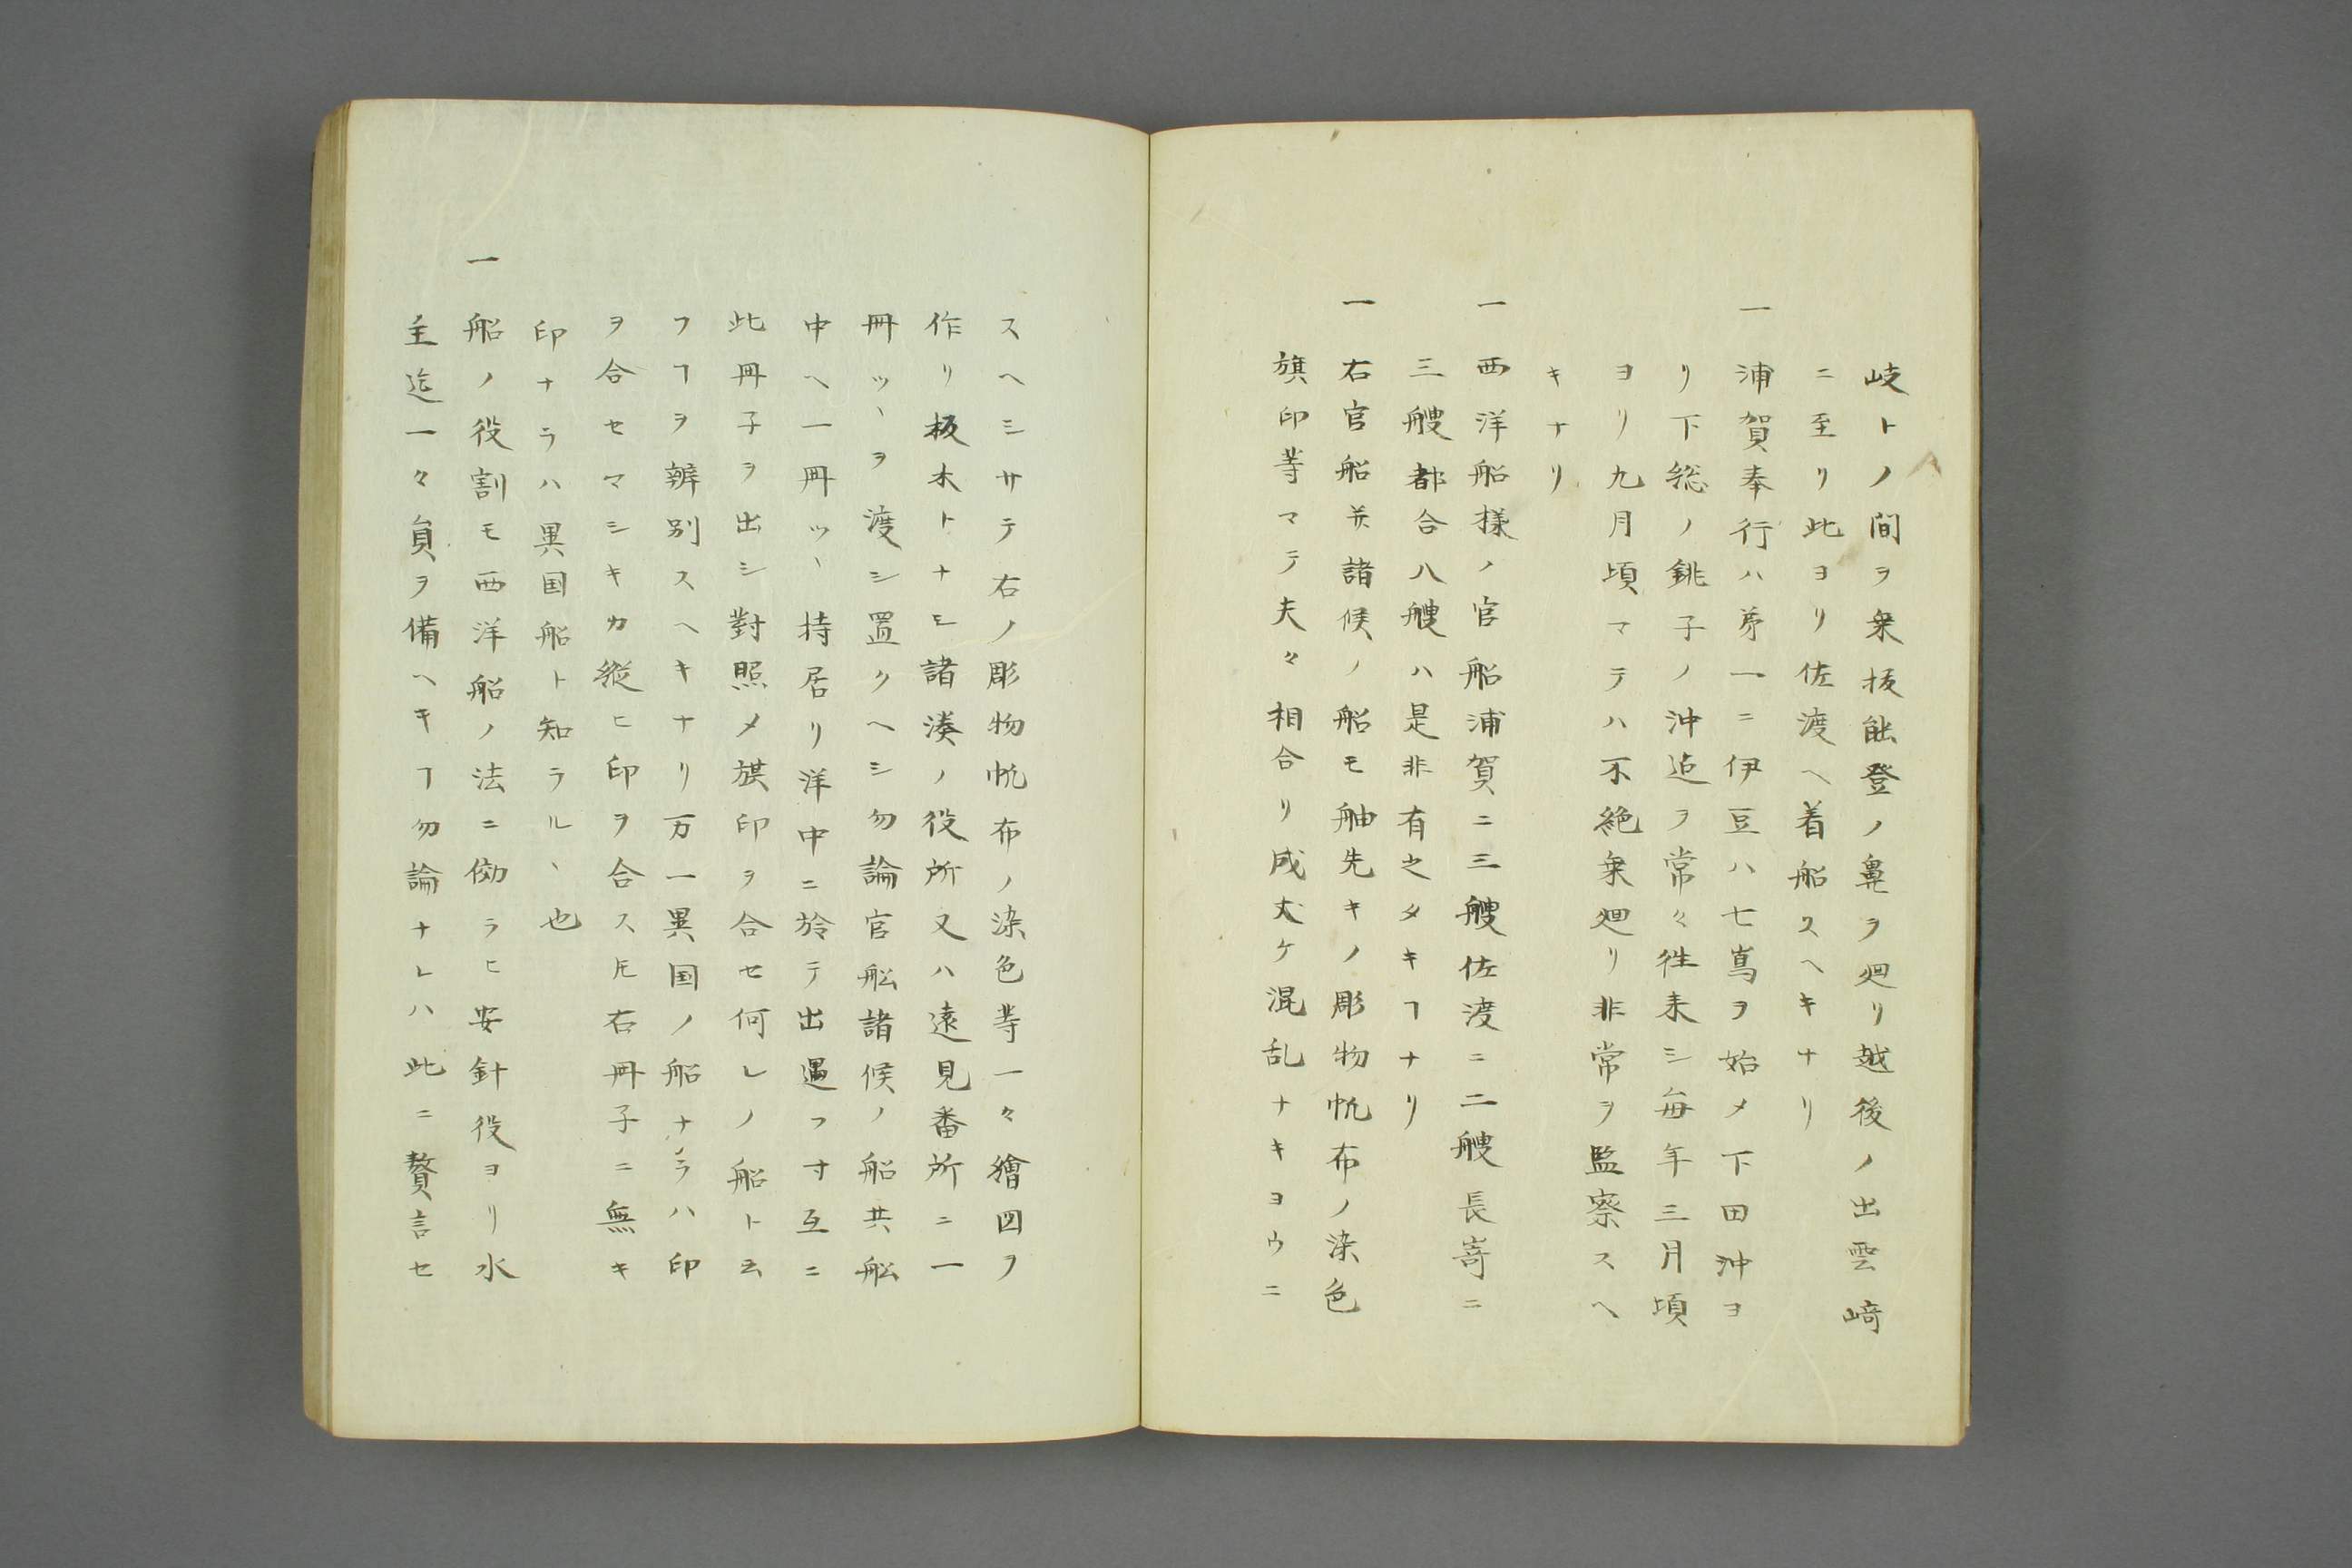 岐トノ間ヲ乗抜能登ノ鼻ヲ廻リ越後ノ出雲﨑
ニ至リ此ヨリ佐渡ヘ着船スヘキナリ
一 浦賀奉行ハ㐧一ニ伊豆ハ七嶌ヲ始メ下田沖ヨ
リ下総ノ銚子ノ沖迠ヲ常々徃来シ毎年三月頃
ヨリ九月頃マテハ不絶乗廻リ非常ヲ監察スヘ
キナリ
一 西洋船様ノ官船浦賀ニ三艘佐渡ニ二艘長嵜ニ
三艘都合八艘ハ是非有之タキヿナリ
一 右官船并諸候ノ船モ舳先キノ彫物帆布ノ染色
旗印等マテ夫々相合リ成丈ケ混乱ナキヨウニ
スヘシサテ右ノ彫物帆布ノ染色等一々繪図ヲ
作リ板木トナモ諸湊ノ役所又ハ遠見番所ニ一
冊ッヽヲ渡シ置クヘシ勿論官船諸候ノ船共船
中ヘ一冊ッヽ持居リ洋中ニ於テ出遇フ寸互ニ
此冊子ヲ出シ對照メ旗印ヲ合セ何レノ船ト云
フヿヲ辨別スヘキナリ万一異国ノ船ナラハ印
ヲ合セマシキカ縦ヒ印ヲ合スㇳモ右冊子ニ無キ
印ナラハ異国船ト知ラルヽ也
一 船ノ役割モ西洋船ノ法ニ傚ラヒ安針役ヨリ水
主迠一々員ヲ備ヘキヿ勿論ナレハ此ニ贅言セ